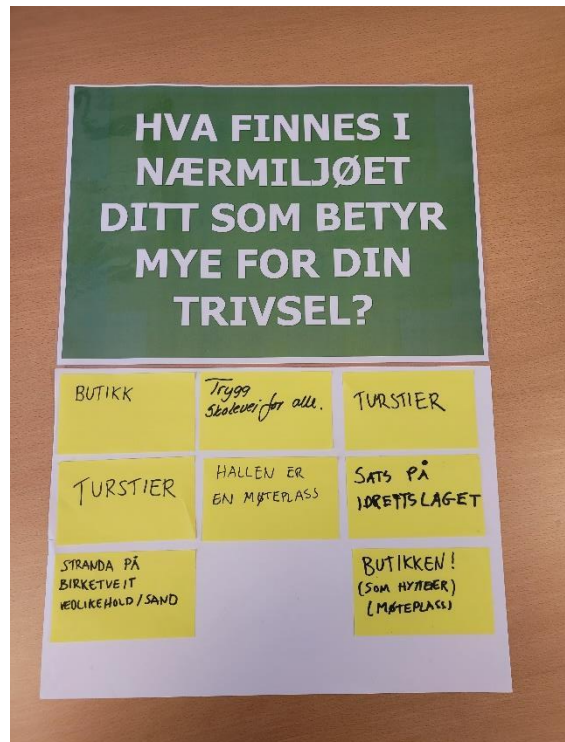 HVA FINNES I
NÆRMILJØET
DITT SOM BETYR
MYE FOR DIN
TRIVSEL?
BUTIKK
Trygg
Skolevei for alle.
TURSTIER
TURSTIER
HALLEN ER
EN MØTEPLASS
SATS PÅ
IDRETTSLAGET
STRANDA PÅ
BIRKETVEIT
VEDLIKEHOLD/SAND
BUTIKKEN!
(SOM
(MØTEPLASS)